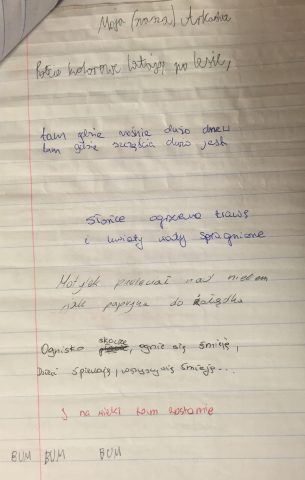 Moja (nasza) Arkadia
kolorowe latają po lesie,
tam gdzie rośnie dużo drzew
tam gdzie szczęścia dużo jest
Słońce ogrzewa trawę
i kwiaty wody spragnione
Motylek przeleciał nad
jak papryka do żołądka
Ognisko skacze, ognie się śmieją,
Dzieci śpiewają, wszyscy się śmieją...
I na wieki tam zostanę
BUM BUM BUM